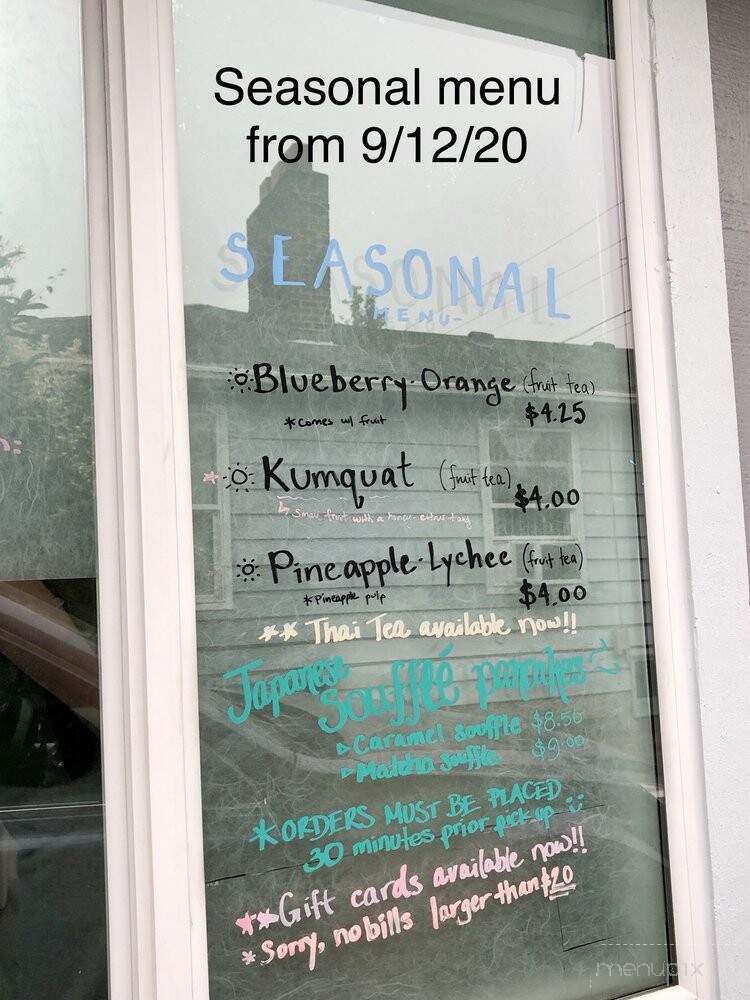 Seasonal menu
from 9/12/20
SEASONAL
MENU-
Blueberry·Orange (fruit tea)
*Comes w/ fruit $4.25
Kumquat (fruit tea)
$4.00
Small fruit with a honey-citrus tang
Pineapple·Lychee (fruit tea)
*Pineapple pulp $4.00
** Thai Tea available now!!
Japanese
Soufflé pancakes
Caramel souffle $8.50
Matcha souffle $9.00
*ORDERS MUST BE PLACED
30 minutes prior pick up
**Gift cards available now!!
*Sorry, no bills larger than $20
menupix